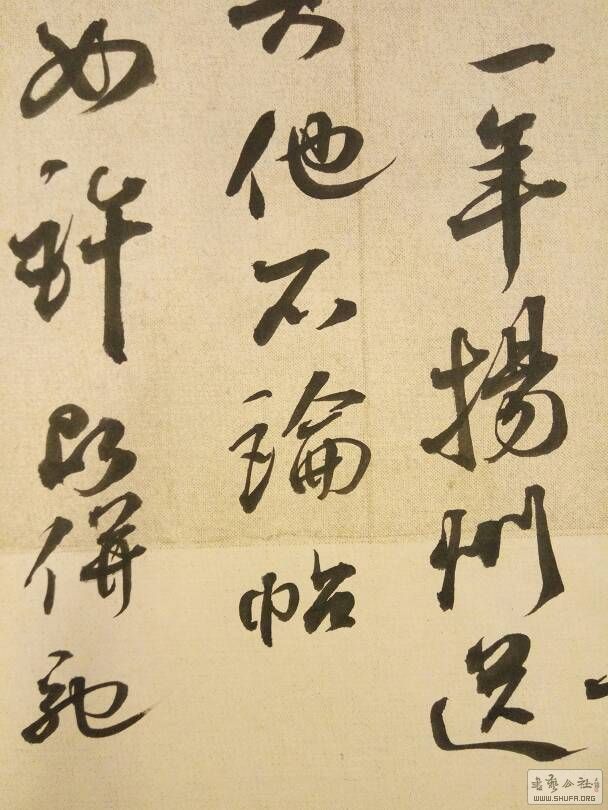 一年揚州送
他不論帖
如許即併馳
書藝公社
WWW.SHUFA.ORG